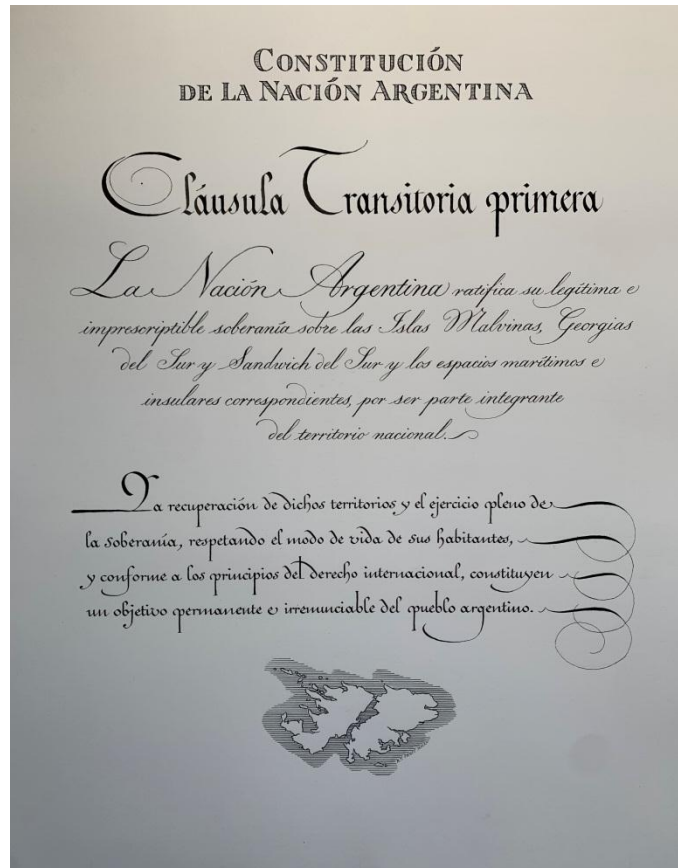 CONSTITUCIÓN
DE LA NACIÓN ARGENTINA
Cláusula Transitoria primera
La Nación Argentina ratifica su legítima e
imprescriptible soberanía sobre las Islas Malvinas, Georgias
del Sur y Sandwich del Sur y los espacios marítimos e
insulares correspondientes, por ser parte integrante
del territorio nacional.
La recuperación de dichos territorios y el ejercicio pleno de
la soberanía, respetando el modo de vida de sus habitantes,
y conforme a los principios del derecho internacional, constituyen
un objetivo permanente e irrenunciable del pueblo argentino.